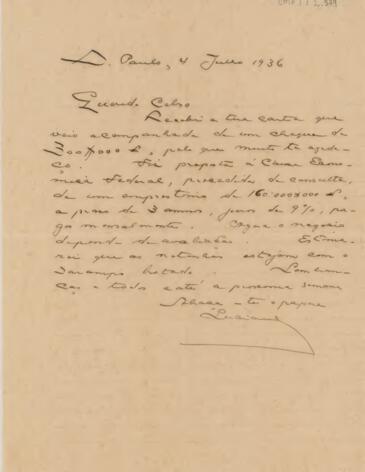 S. Paulo, 4 Julho 1936
Querido Celso
Recebi a tua carta que
veio acompanhada de um cheque de
300$000, pelo que muito te agrade-
ço. Fiz proposta á Caixa Econo-
mica Federal, precedida de consulta,
de um emprestimo de 160:000$000
a prazo de 3 annos, juros de 9%, pa-
go mensalmente. O negocio
depende de avaliação.
rei que as netinhas estejam com o
sarampo
ças a todos e até a proxima semana
Abraça-te o papae
Luciano